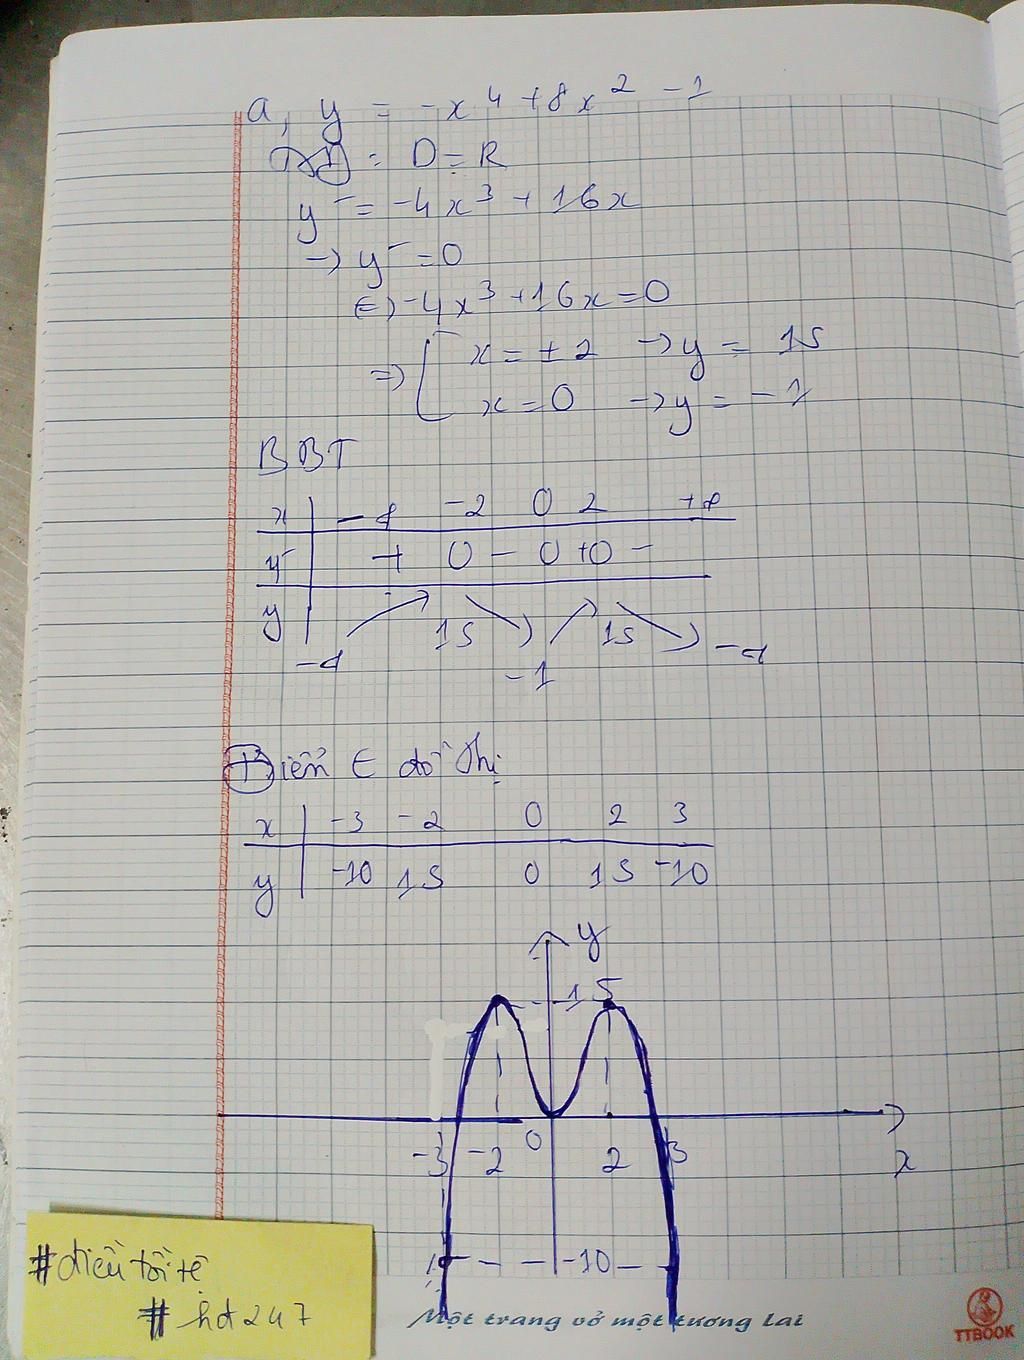 a, y = -x⁴ + 8x² - 1
TXĐ : D = R
y' = -4x³ + 16x
→ y' = 0
⇔ -4x³ + 16x = 0
⇒ [ x = ±2 → y = 15
x = 0 → y = -1
BBT
x | -∞ -2 0 2 +∞
y' | + 0 - 0 + 0 -
y | 15 15
-∞ -1 -∞
Điểm ∈ đồ thị
x | -3 -2 0 2 3
y | -10 15 0 15 -10
y
15
0
-3 -2 2 3 x
-10
#điều tồi tệ
#hd247
Một trang vở một tương lai
TTBOOK